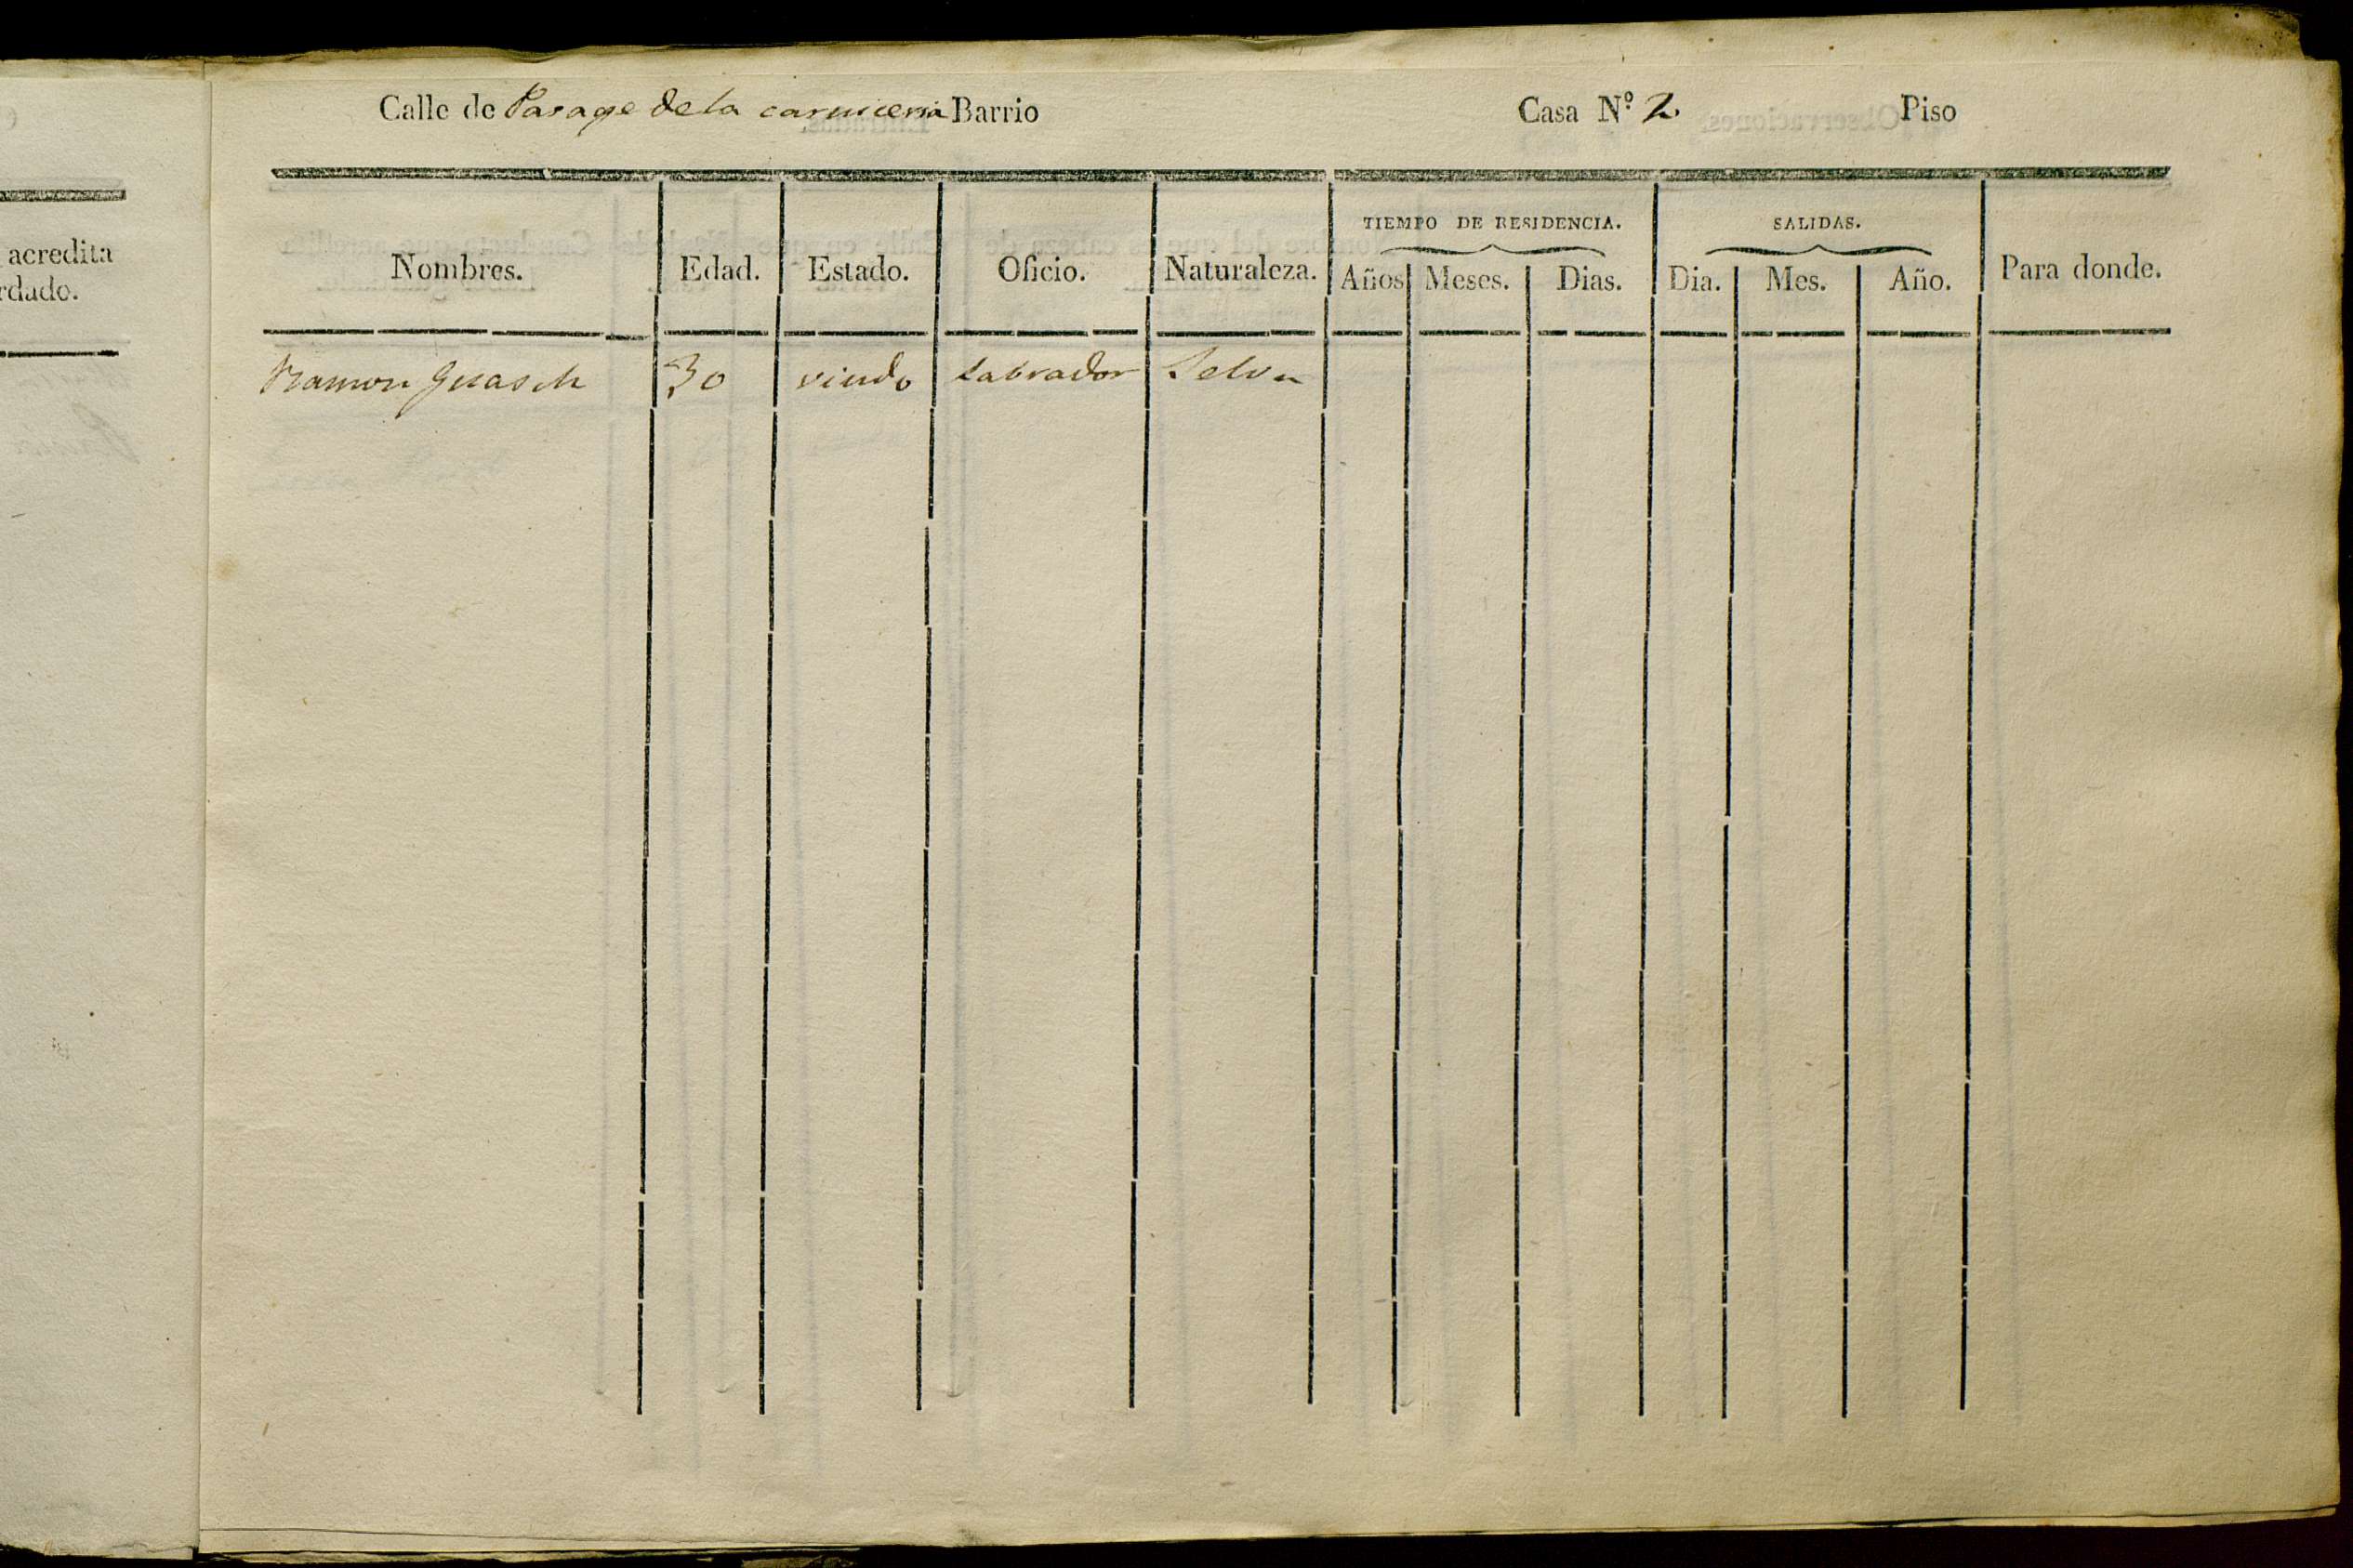 Calle de Pasage de la carniceria Barrio Casa N.º 2 Piso
acredita
rdado.
TIEMPO DE RESIDENCIA. SALIDAS.
Nombres. Edad. Estado. Oficio. Naturaleza. Años Meses. Dias. Dia. Mes. Año. Para donde.
Ramon Guasch 30 viudo Labrador Selva